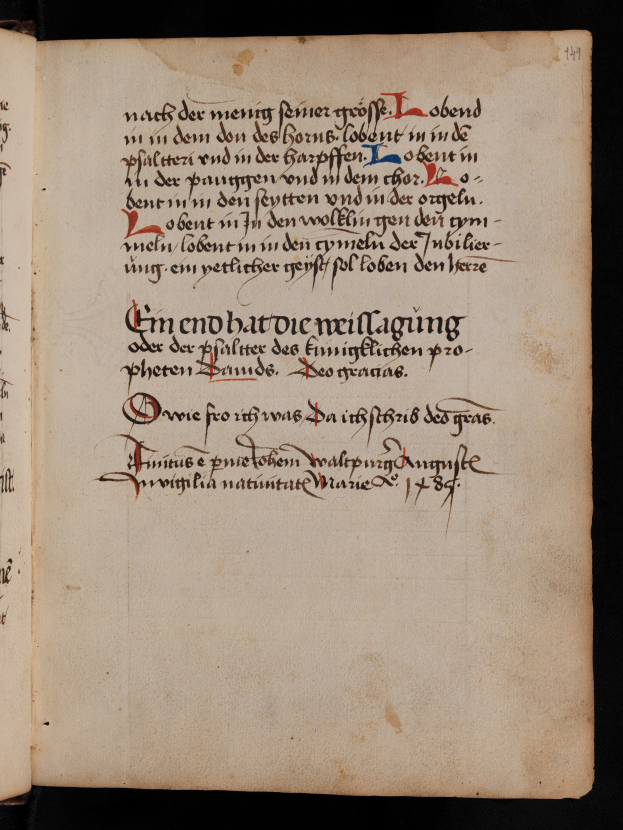 149
nach der menig seiner grösse. Lobend
in in dem don des horns. lobent in in dē
psaltteri vnd in der harpffen. Lobent in
in der pauggen vnd in dem chor. Lo-
bent in in den seytten vnd in der orgeln.
Lobent in In den wolklingen den cym-
meln, lobent in in den cymeln der Jubilier-
ung. ein yetlicher geyst, sol loben den herrē
Ein end hat die weissagüng
oder der psaltter des künigklichen pro-
pheten Dauids. Deo gracias.
O wie fro ich was, Da ich schrib deo gras.
Finitus ē p me Johem waltpurg August
In vigilia natiuitat Marie